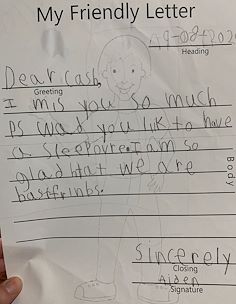 My Friendly Letter
Heading
Dear cash,
Greeting
I mis you so much
Ps wad you lik to have
a sleepovre. I am so
glad that we are
bastfrinbs.
Body
Sincerely
Closing
Aiden
Signature